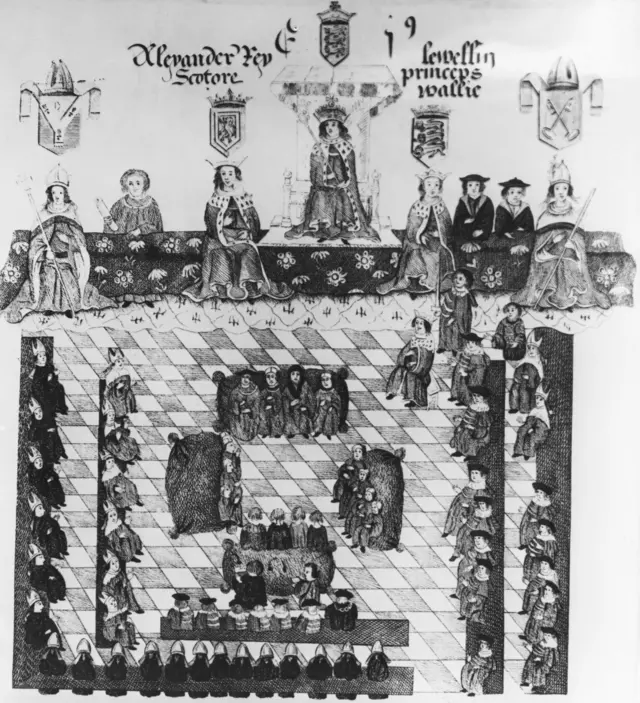 E i9
Alexander Rey
Scotore
lewellin
princeps
wallie